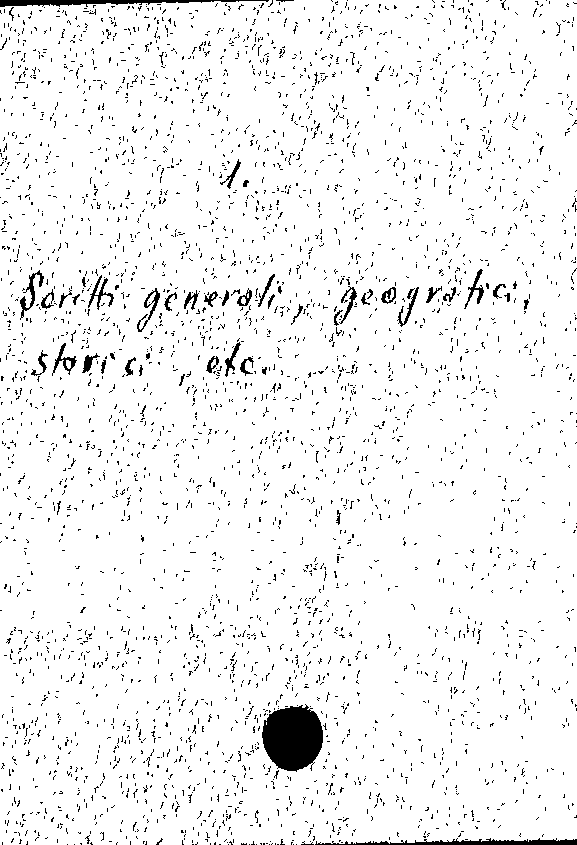 1.
Scritti generali, geografici,
storici, etc.